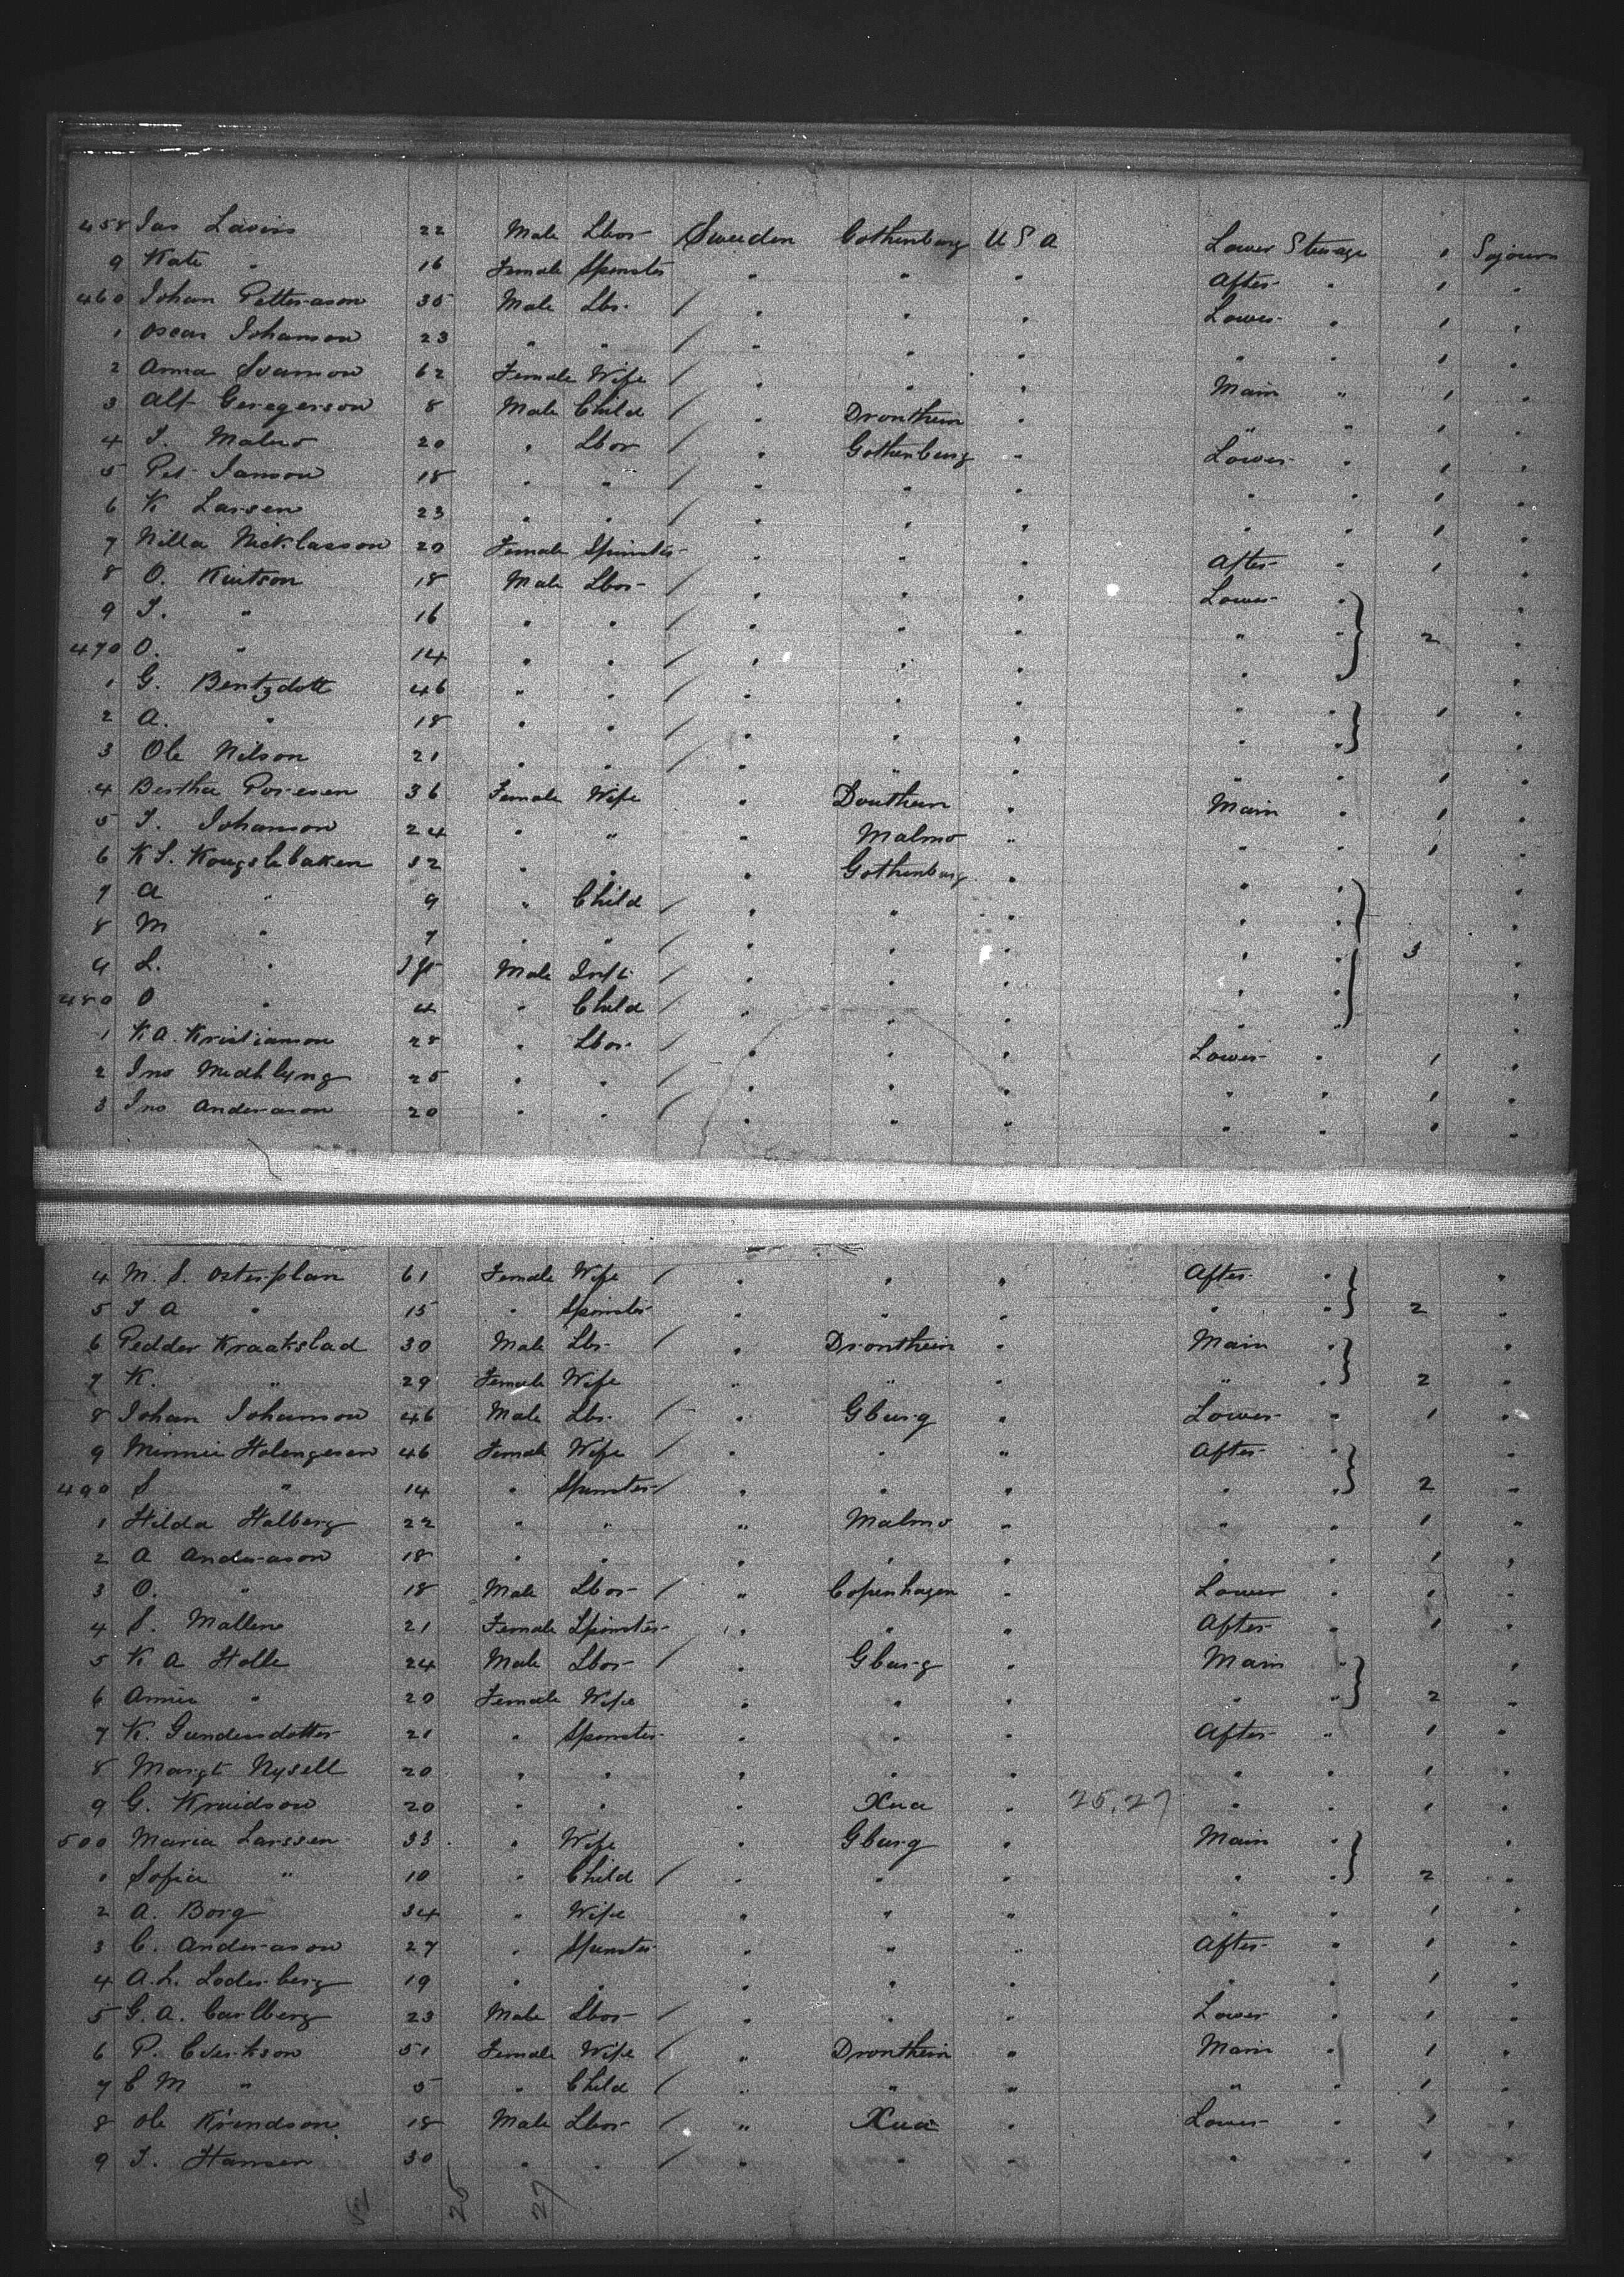 458 Jas Lavins 22 Male Lbor Sweden Gothenburg U S A Lower Steerage 1 Sojourn
9 Kate " 16 Female Spinster " " " After " 1 "
460 Johan Petterason 35 Male Lbr / " " " Lower " 1 "
1 Oscar Johanson 23 " " / " " " " " 1 "
2 Anna Svanson 62 Female Wife / " " " Main " 1 "
3 Alf Geregerson 8 Male Child / " Drontheim " " " 1 "
4 J. Malmo 20 " Lbor / " Gothenburg " Lower " 1 "
5 Pet Janson 18 " " / " " " " " 1 "
6 K Larsen 23 " " / " " " " " 1 "
7 Nilla Nicklasson 20 Female Spinster " " " After " 1 "
8 O. Knutson 18 Male Lbor / " " " Lower " "
9 J. " 16 " " / " " " " " 2 "
470 O. " 14 " " / " " " " " "
1 G. Bentzdott 46 " " / " " " " " 1 "
2 A. " 18 " " / " " " " " "
3 Ole Nilson 21 " " / " " " " " 1 "
4 Bertha Poresen 36 Female Wife " Dontheim " Main " 1 "
5 J. Johanson 24 " " " Malmo " " " 1 "
6 K S. Kougslebaken 32 " " " Gothenburg " " " "
7 A " 9 " Child / " " " " " "
8 M " 7 " " / " " " " " 3 "
9 L. " Male Inft / " " " " " "
480 O " 4 " Child / " " " " " "
1 K A. Kristianson 28 " Lbor / " " " Lower " 1 "
2 Jno Medhlyng 25 " " / " " " " " 1 "
3 Jno Anderason 20 " " / " " " " " 1 "
4 M. S. Osterplan 61 Female Wife / " " " After " "
5 J A " 15 " Spinster " " " " " 2 "
6 Pedder Kraakslad 30 Male Lbr / " Drontheim " Main " "
7 K. " 29 Female Wife " " " " " 2 "
8 Johan Johanson 46 Male Lbr / " Gburg " Lower " 1 "
9 Minnie Holengeson 46 Female Wife / " " " After " "
490 S " 14 " Spinster / " " " " " 2 "
1 Hilda Halberg 22 " " " Malmo " " " 1 "
2 A Anderason 18 " " " " " " " 1 "
3 O. " 18 Male Lbor / " Copenhagen " Lower " 1 "
4 S. Mallene 21 Female Spinster " " " After " 1 "
5 K A Holle 24 Male Lbor / " Gburg " Main " "
6 Annie " 20 Female Wife " " " " " 2 "
7 K. Gundersdotter 21 " Spinster " " " After " 1 "
8 Margt Nysell 20 " " " " " " " 1 "
9 G. Knuidson 20 " " " Xua " 25,27 " " 1 "
500 Maria Larssen 33 " Wife " Gburg " Main " "
1 Sofia " 10 " Child / " " " " " 2 "
2 A. Borg 34 " Wife " " " " " 1 "
3 C. Anderason 27 " Spinster " " " After " 1 "
4 A. L. Loderberg 19 " " " " " " " 1 "
5 G. A. Carlberg 23 Male Lbor / " " " Lower " 1 "
6 P. 51 Female Wife / " Drontheim " Main " 1 "
7 C M " 5 " Child / " " " " " 1 "
8 Ole Krindson 18 Male Lbor / " Xua " Lower " 1 "
9 J. Hansen 30 " " / " " " " " 1 "
25 27